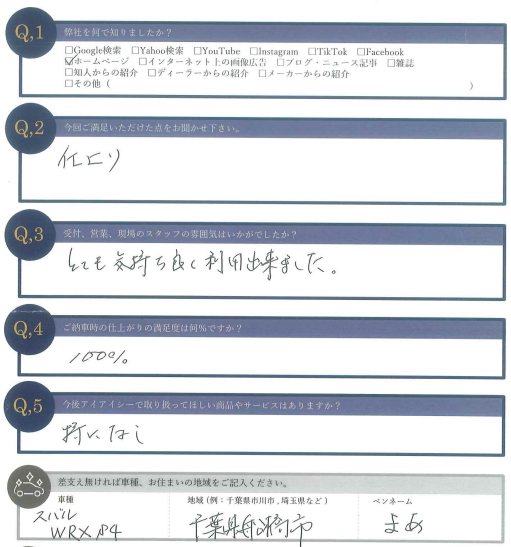 Q,1 弊社を何で知りましたか？
□Google検索 □Yahoo検索 □YouTube □Instagram □TikTok □Facebook
☑ホームページ □インターネット上の画像広告 □ブログ・ニュース記事 □雑誌
□知人からの紹介 □ディーラーからの紹介 □メーカーからの紹介
□その他（ ）
Q,2 今回ご満足いただけた点をお聞かせ下さい。
仕上り
Q,3 受付、営業、現場のスタッフの雰囲気はいかがでしたか？
とても気持ち良く利用出来ました。
Q,4 ご納車時の仕上がりの満足度は何%ですか？
100%
Q,5 今後アイアイシーで取り扱ってほしい商品やサービスはありますか？
特になし
差支え無ければ車種、お住まいの地域をご記入ください。
車種 地域（例：千葉県市川市，埼玉県など） ペンネーム
スバル
WRX S4 千葉県船橋市 まあ